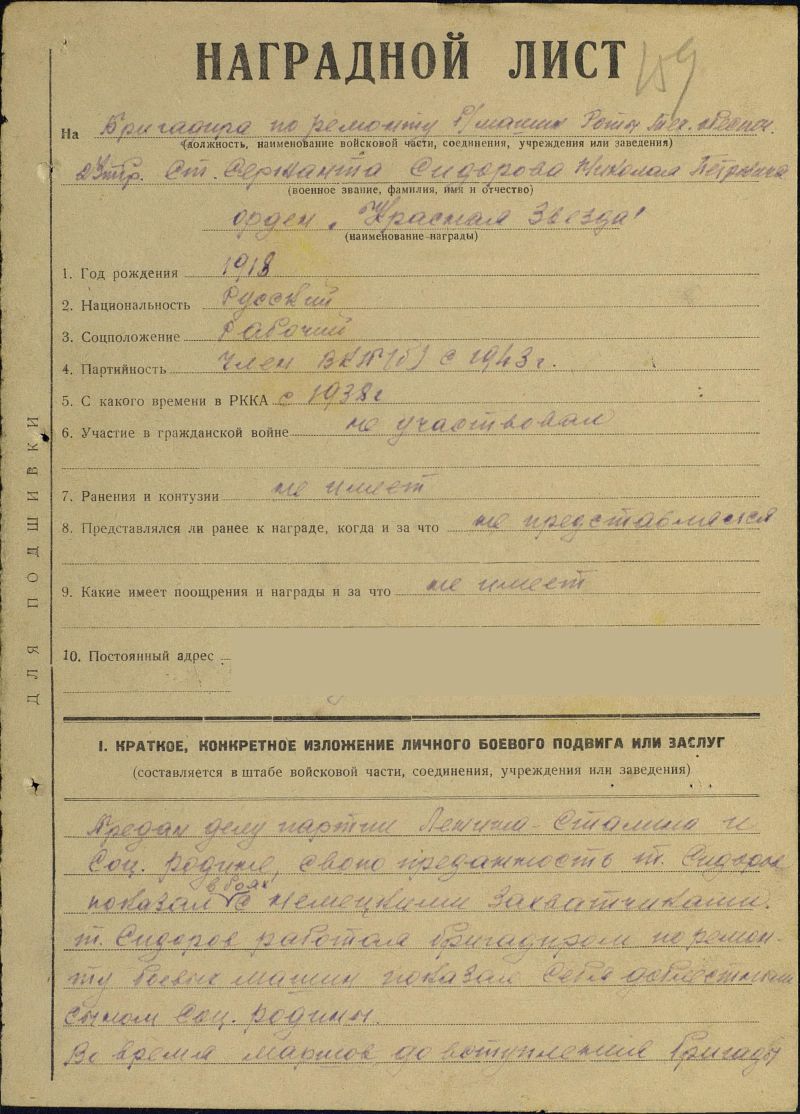 НАГРАДНОЙ ЛИСТ
159
На Бригадира по ремонту б/машин Роты тех. обеспеч.
(должность, наименование войсковой части, соединения, учреждения или заведения)
Ст. Сержанта Сидорова Николая Петровича
(военное звание, фамилия, имя и отчество)
орден "Красная Звезда"
(наименование награды)
1. Год рождения 1918
2. Национальность Русский
3. Соцположение Рабочий
4. Партийность член ВКП(б) с 1943 г.
5. С какого времени в РККА с 1938 г
6. Участие в гражданской войне не участвовал
7. Ранения и контузии не имеет
8. Представлялся ли ранее к награде, когда и за что не представлялся
9. Какие имеет поощрения и награды и за что не имеет
10. Постоянный адрес
ДЛЯ ПОДШИВКИ
I. КРАТКОЕ, КОНКРЕТНОЕ ИЗЛОЖЕНИЕ ЛИЧНОГО БОЕВОГО ПОДВИГА ИЛИ ЗАСЛУГ
(составляется в штабе войсковой части, соединения, учреждения или заведения)
Предан делу партии Ленина-Сталина и
Соц. родине, свою преданность т. Сидоров
показал в боях с немецкими захватчиками.
т. Сидоров работая бригадиром по ремон-
ту боевых машин показал себя доблестным
сыном соц. родины.
Во время маршов, до вступления бригады